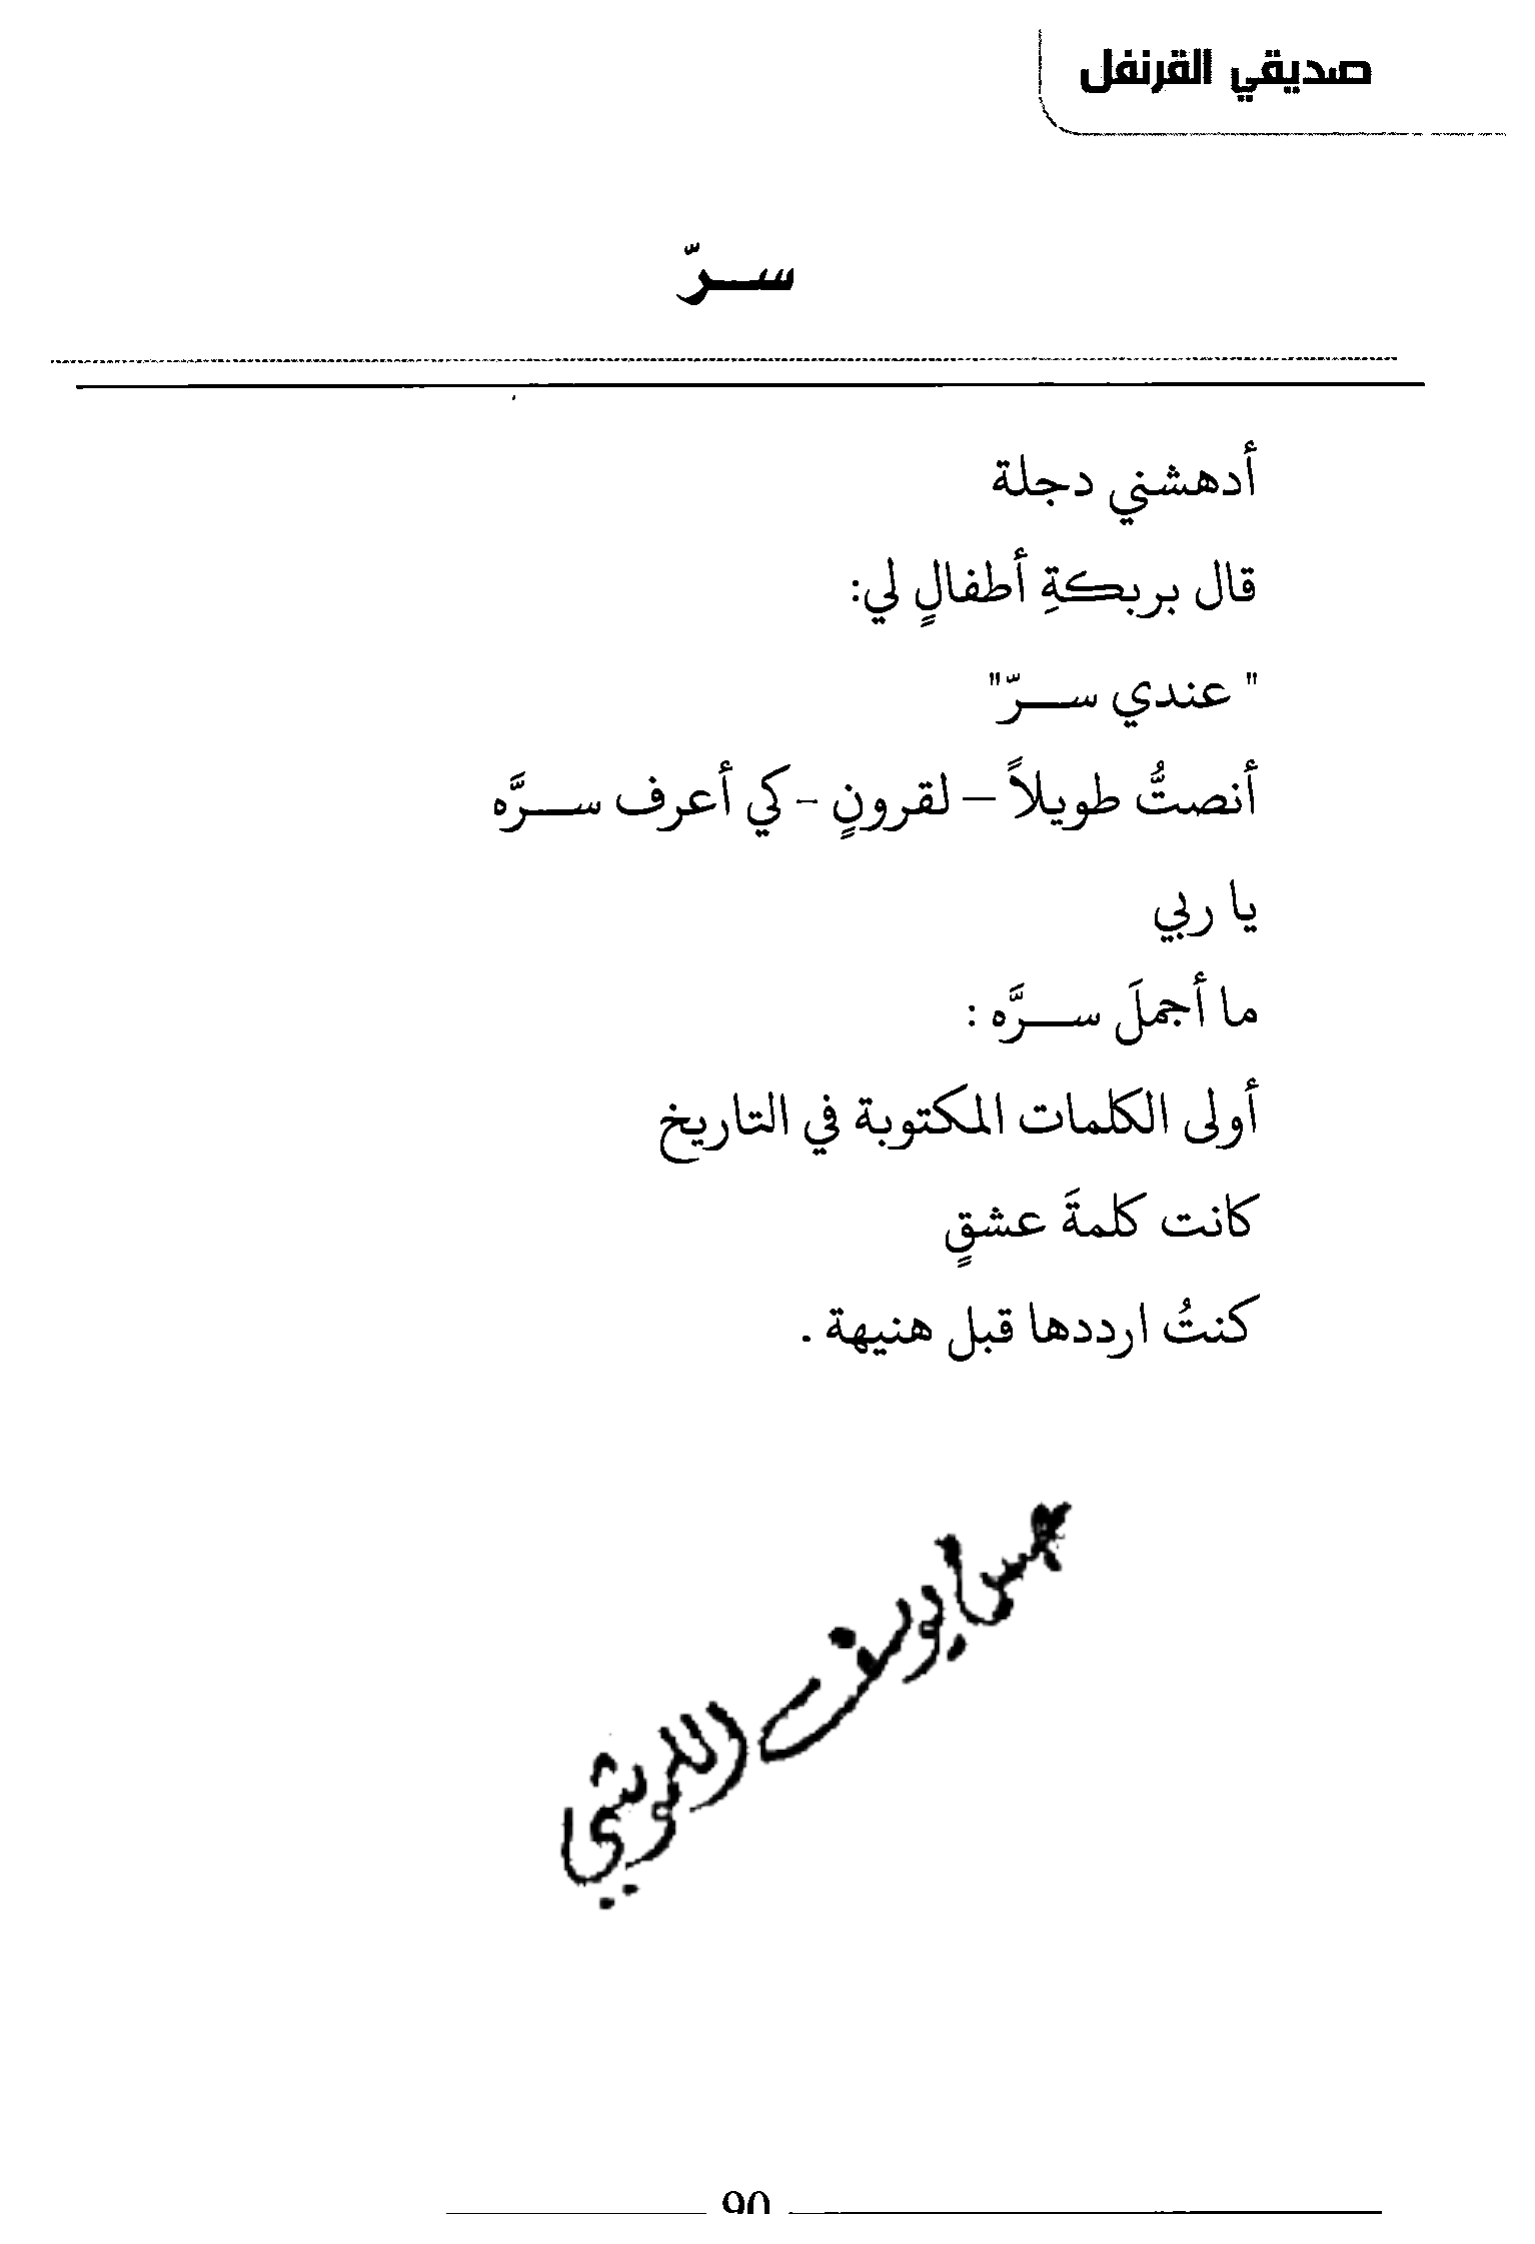 صديقي القرنفل
ســرّ
أدهشني دجلة
قال بربكةِ أطفالٍ لي:
" عندي ســرّ"
أنصتُّ طويلاً – لقرونٍ - كي أعرف ســرَّه
يا ربي
ما أجملَ ســرَّه :
أولى الكلمات المكتوبة في التاريخ
كانت كلمةَ عشقٍ
كنتُ ارددها قبل هنيهة .
يوسف
90